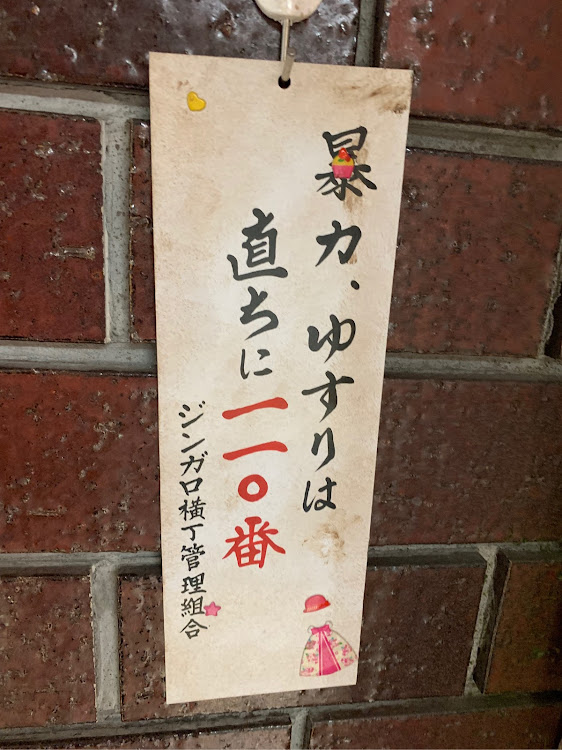 暴力、ゆすりは
直ちに一一〇番
ジンガロ横丁管理組合